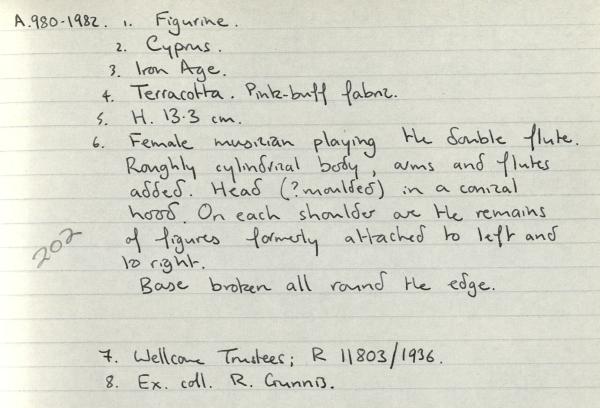 A.980-1982. 1. Figurine.
2. Cyprus.
3. Iron Age.
4. Terracotta. Pink-buff fabric.
5. H. 13.3 cm.
6. Female musician playing the double flute.
Roughly cylindrical body, arms and flutes
added. Head (?moulded) in a conical
hood. On each shoulder are the remains
of figures formerly attached to left and
to right.
Base broken all round the edge.
202
7. Wellcome Trustees; R 11803/1936.
8. Ex. coll. R. Gunnis.